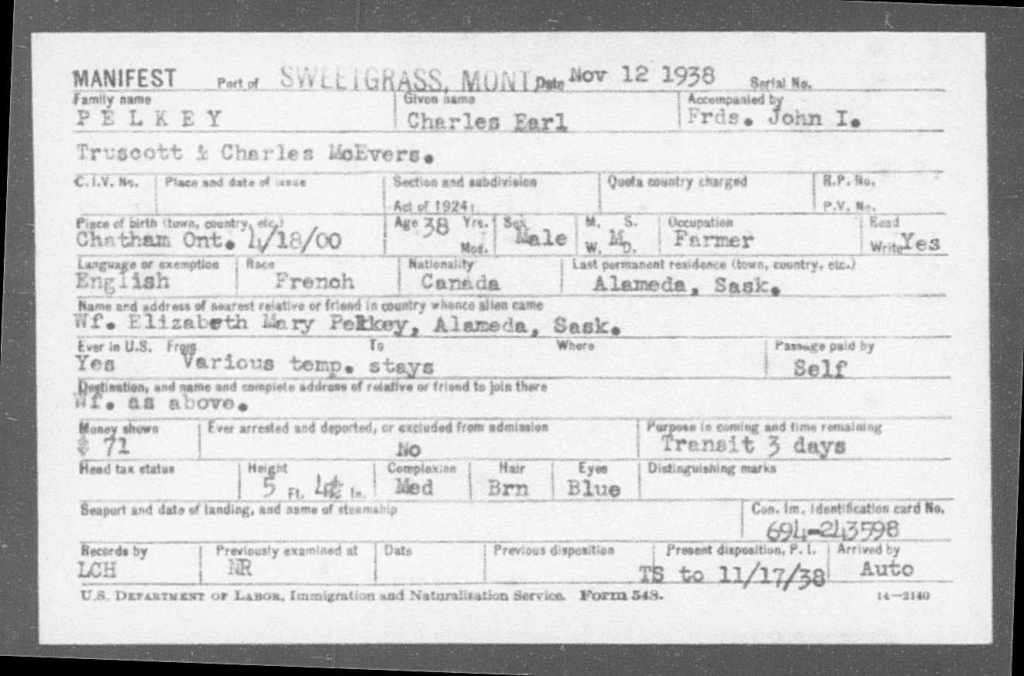 MANIFEST Port of SWEETGRASS, MONT Date Nov 12 1938 Serial No.
Family name Given name Accompanied by
P E L K E Y Charles Earl Frds. John I.
Truscott & Charles McEvers.
C.I.V. No. Place and date of issue Section and subdivision Quota country charged R.P. No.
Act of 1924: P.V. No.
Place of birth (town, country, etc.) Age 38 Yrs. Sex M. S. Occupation Read
Chatham Ont. 4/18/00 Mos. Male W. M D. Farmer Write Yes
Language or exemption Race Nationality Last permanent residence (town, country, etc.)
English French Canada Alameda, Sask.
Name and address of nearest relative or friend in country whence alien came
Wf. Elizabeth Mary Pelkey, Alameda, Sask.
Ever in U.S. From To Where Passage paid by
Yes Various temp. stays Self
Destination, and name and complete address of relative or friend to join there
Wf. as above.
Money shown Ever arrested and deported, or excluded from admission Purpose in coming and time remaining
$ 71 No Transit 3 days
Head tax status Height Complexion Hair Eyes Distinguishing marks
5 Ft. In. Med Brn Blue
Seaport and date of landing, and name of steamship Con. Im. Identification card No.
694-243598
Records by Previously examined at Date Previous disposition Present disposition, P. I. Arrived by
LCH NR TS to 11/17/38 Auto
U.S. DEPARTMENT OF LABOR, Immigration and Naturalization Service. Form 548. 14—2140